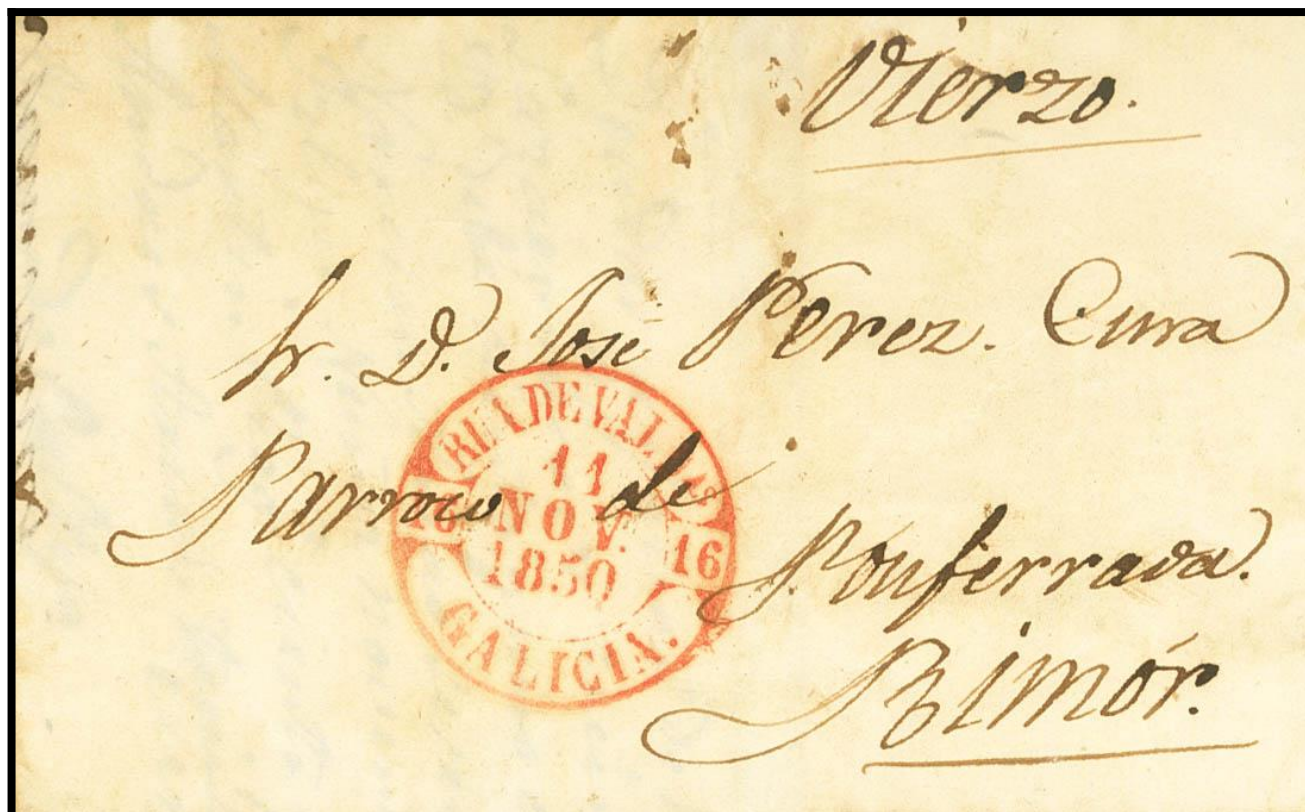 Vierzo.
Sr. D. José Perez. Cura
Parroco de
Ponferrada.
Rimór.
RUA DE VALD.S
11
NOV.
1850
16 16
GALICIA.